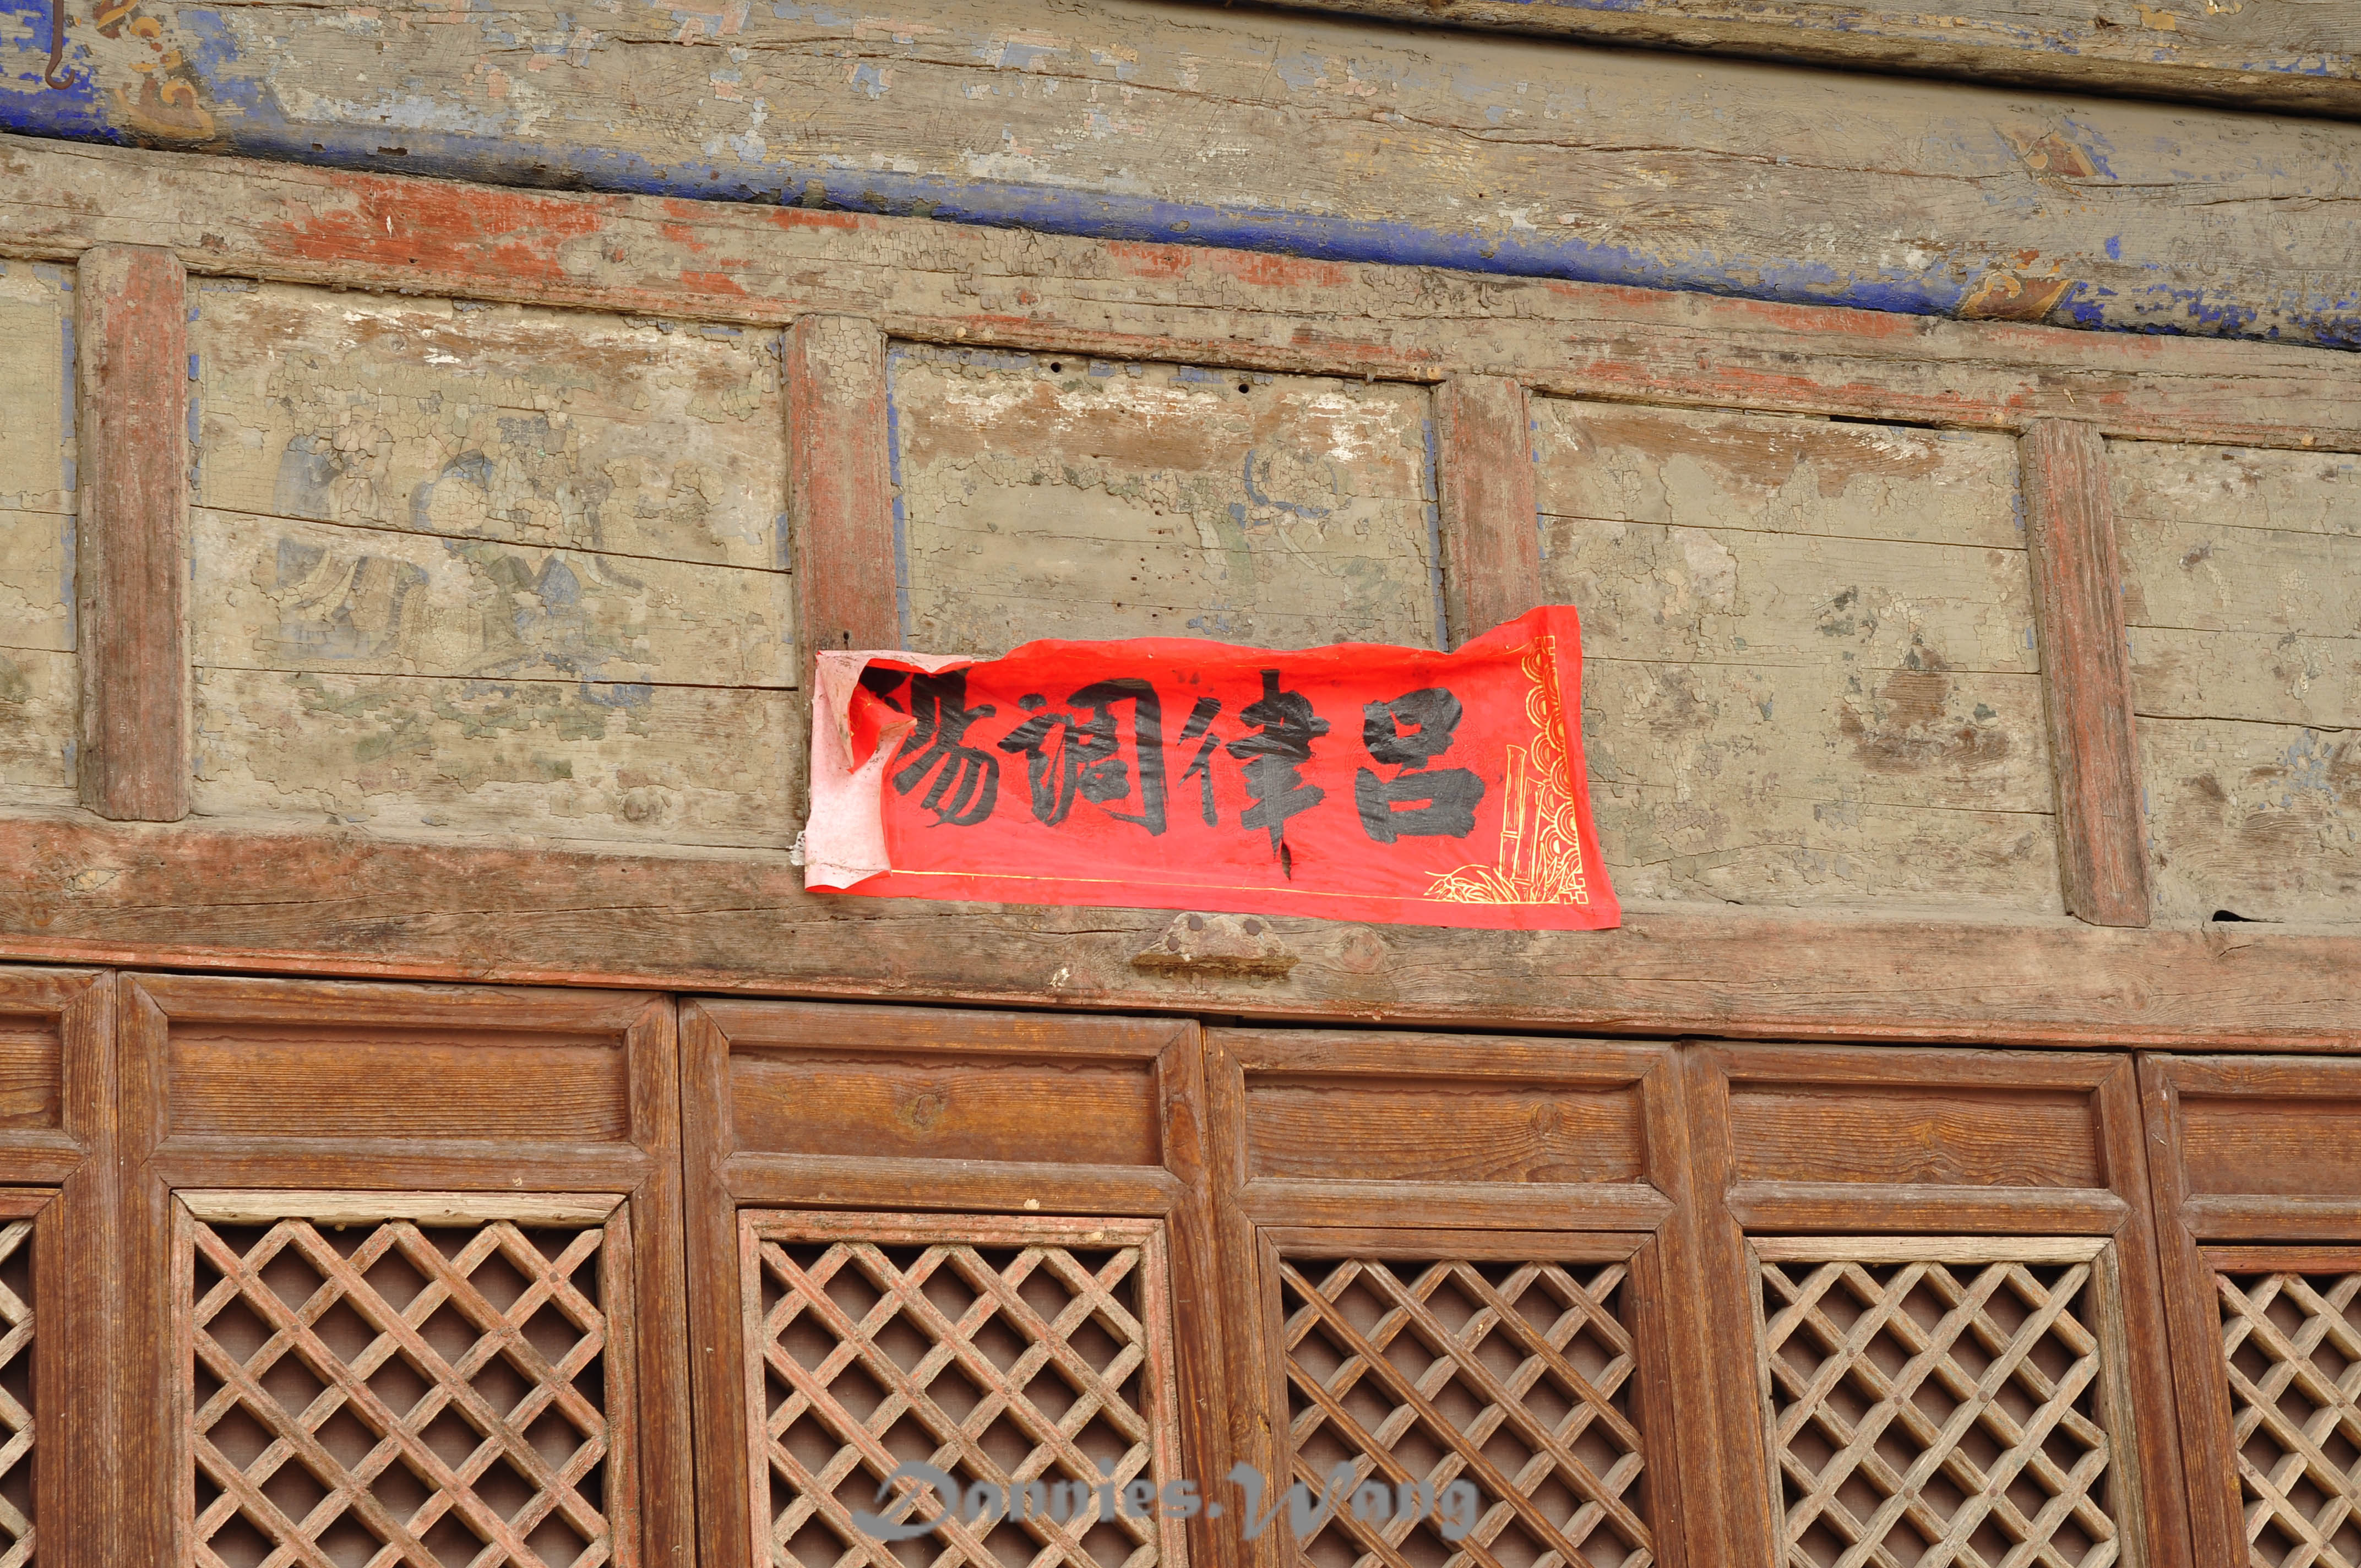 吕律调陽
Dannies.Wang